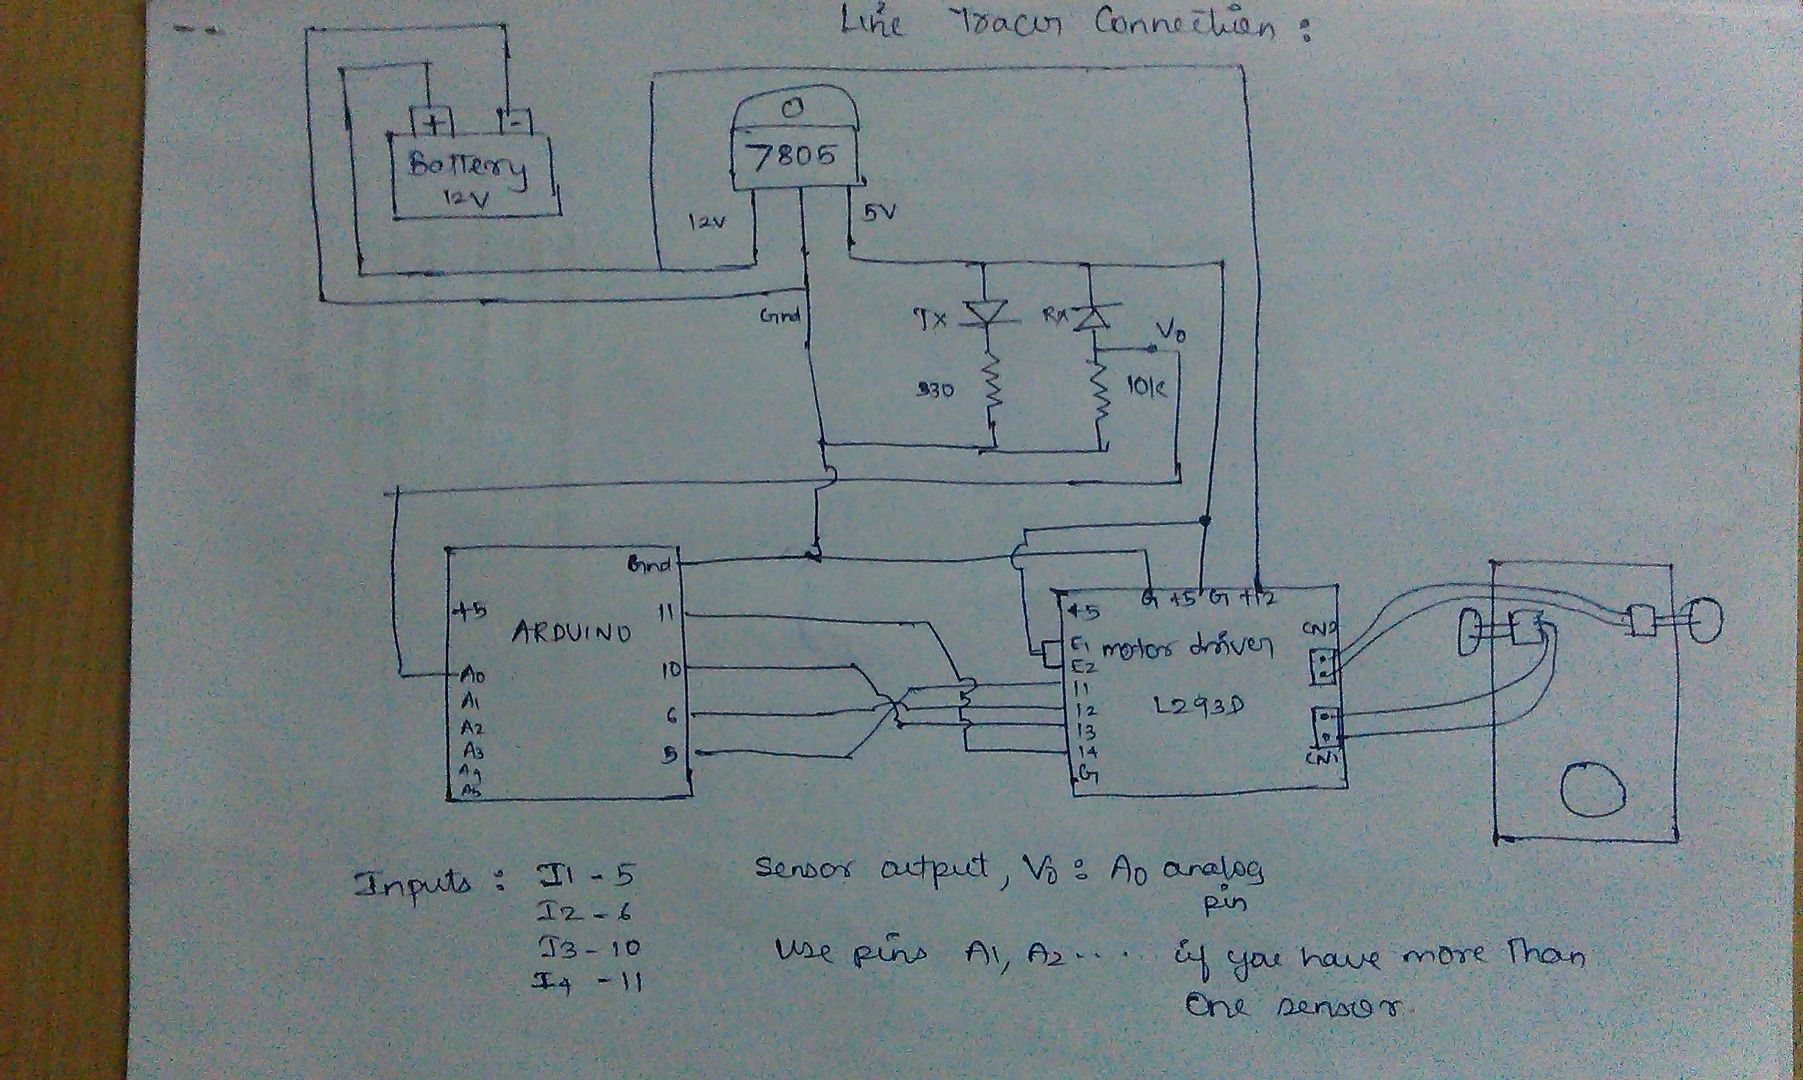 Line Tracer Connection :
+ -
Battery
12V
7805
12V
5V
Gnd
TX
RX
Vo
330
10K
ARDUINO
Gnd
+5
11
10
6
5
A0
A1
A2
A3
A4
A5
+5
G +5 G +12
E1
E2
motor driver
L293D
I1
I2
I3
I4
G
CN2
CN1
Inputs : I1 - 5
I2 - 6
I3 - 10
I4 - 11
Sensor output, Vo : A0 analog
pin
Use pins A1, A2 .... if you have more Than
One sensor.